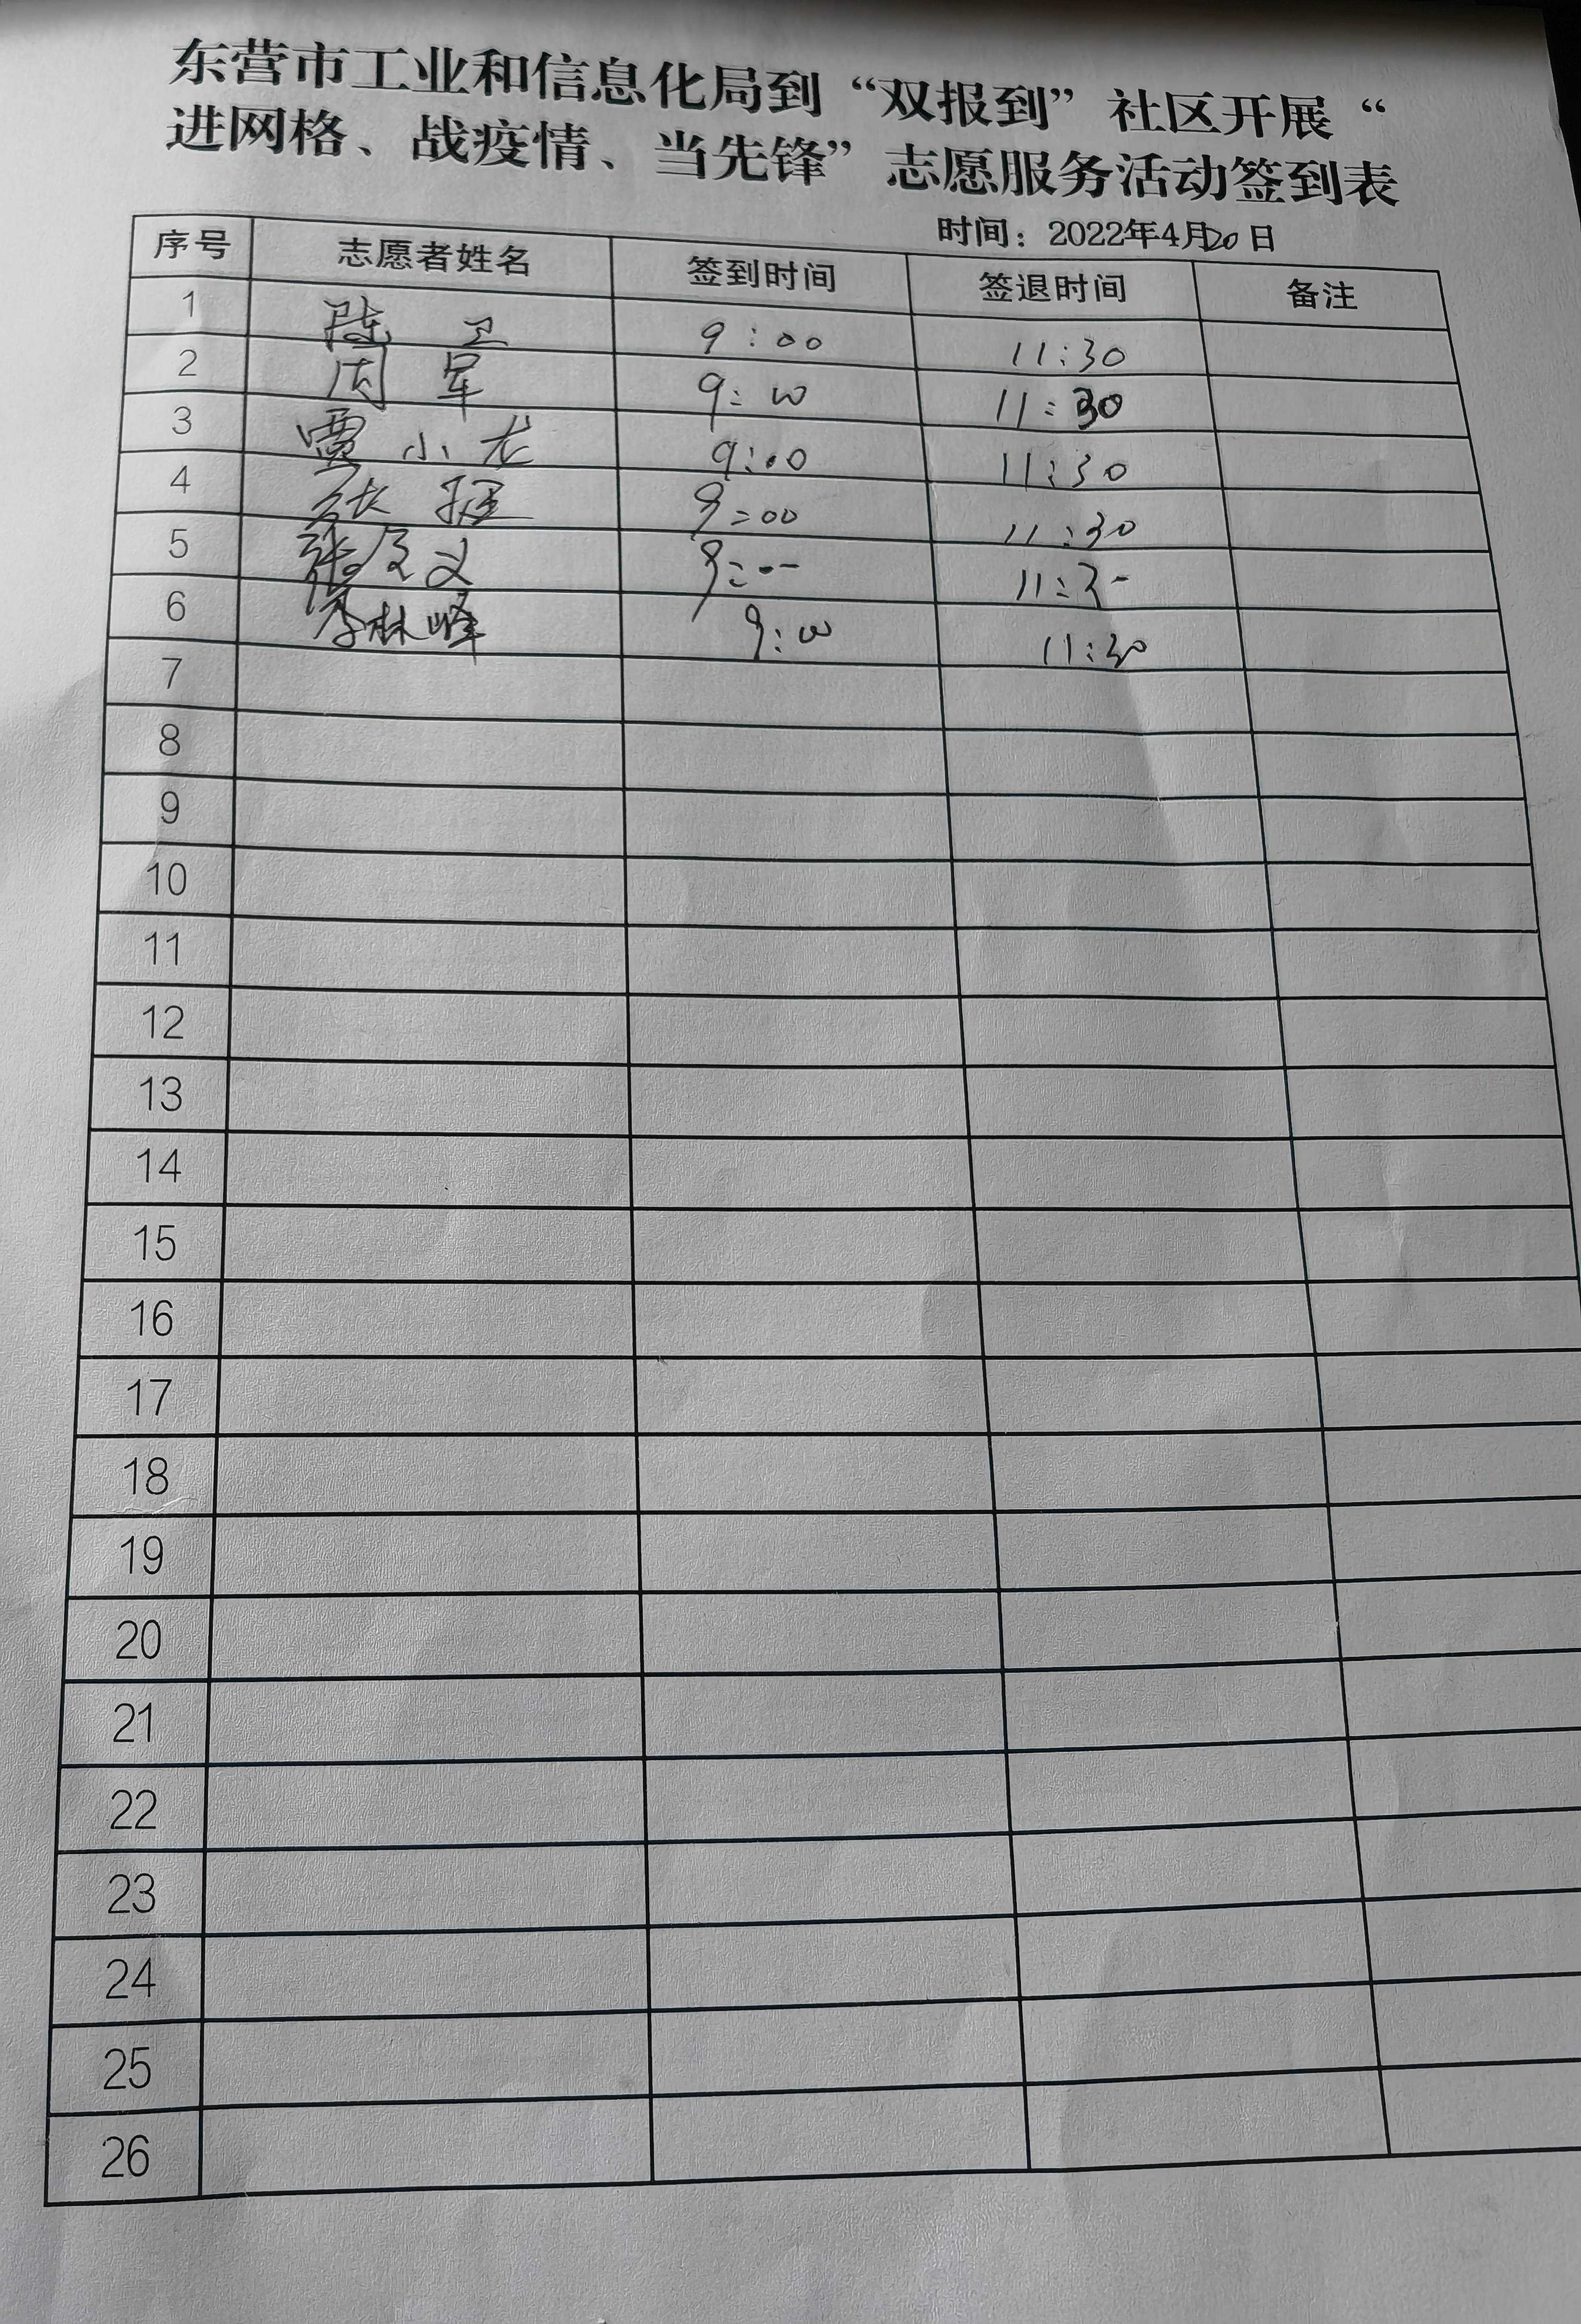 东营市工业和信息化局到“双报到”社区开展“
进网格、战疫情、当先锋”志愿服务活动签到表
时间：2022年4月20日
序号 志愿者姓名 签到时间 签退时间 备注
1 陈卫 9:00 11:30
2 周军 9:00 11:30
3 贾小龙 9:00 11:30
4 张 9:00 11:30
5 张文 9:00 11:30
6 李林峰 9:00 11:30
7
8
9
10
11
12
13
14
15
16
17
18
19
20
21
22
23
24
25
26